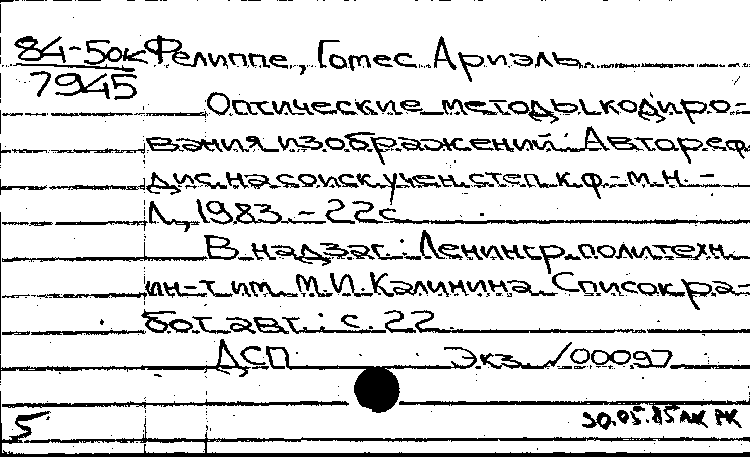 84-5ок Фелиппе, Гомес Ариэль.
7945
Оптические методы кодиро-
вания изображений: Автореф.
дис. на соиск. учен. степ. к.ф.-м.н. -
Л., 1983. - 22 с.
В надзаг.: Ленингр. политехн.
ин-т им. М.И. Калинина. Список ра-
бот авт.: с. 22.
ДСП Экз. №00097
5 30.05.85 ЛК РК